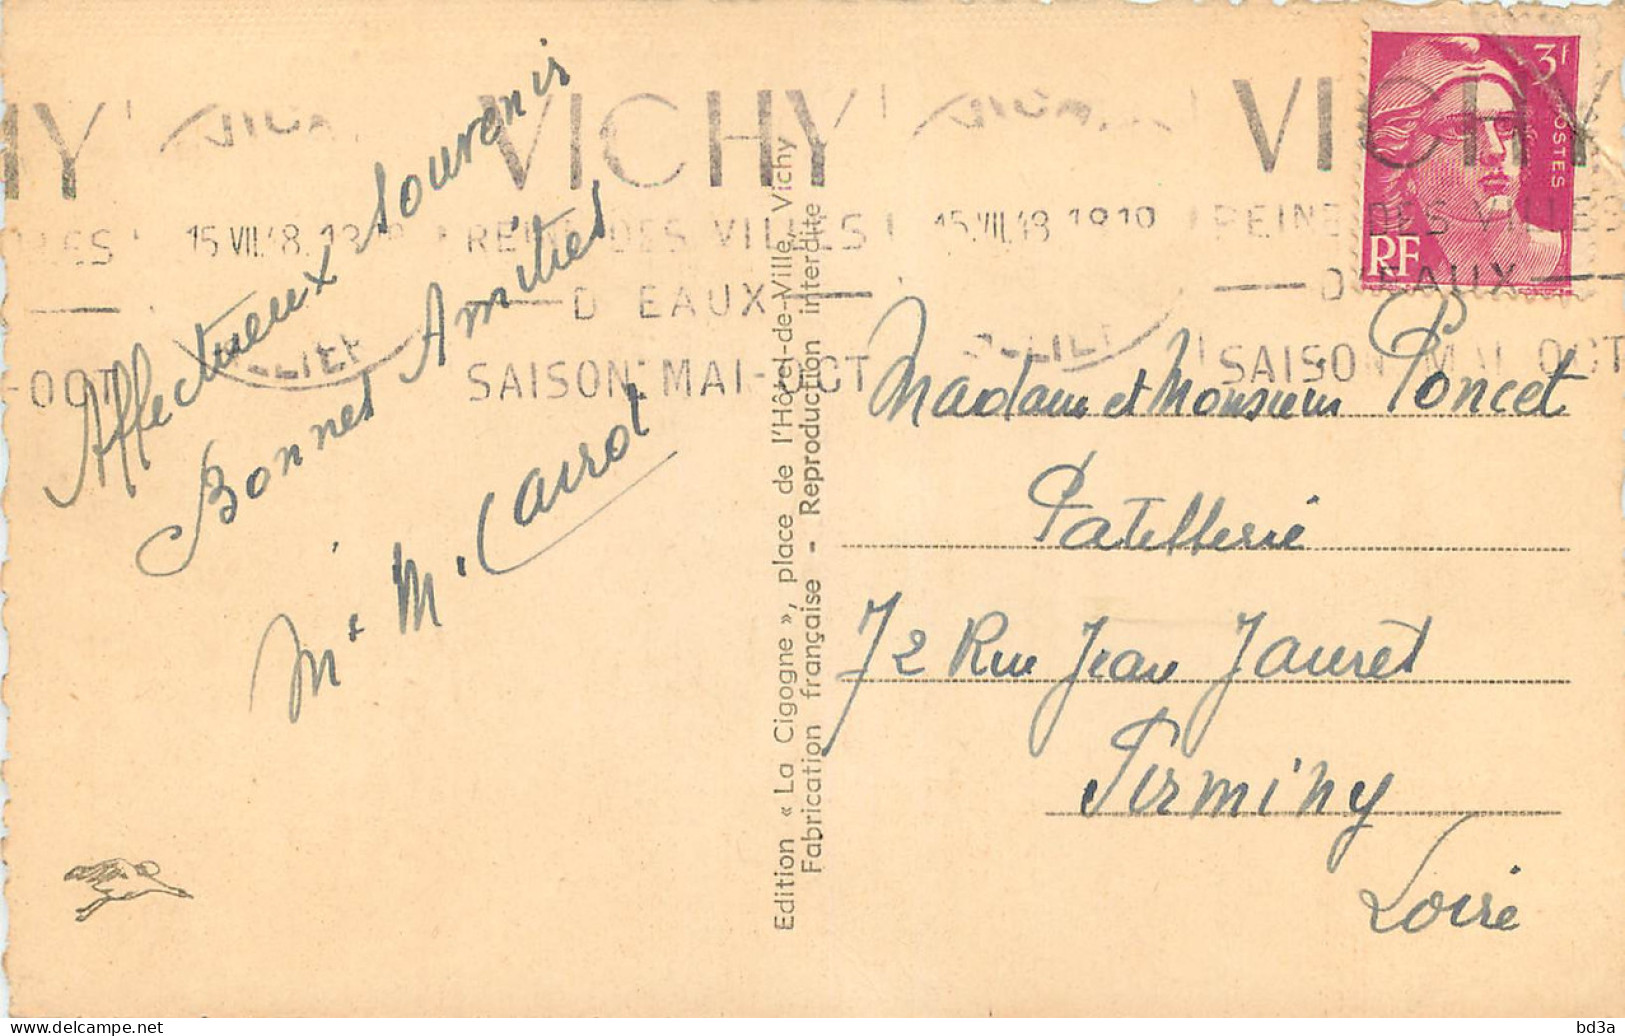 VICHY
REINE DES VILLES
D'EAUX
SAISON MAI-OCT
15 VII.48. 1819
VICHY
REINE DES VILLES
D'EAUX
SAISON MAI-OCT
15.VII.48 1819
3f
POSTES
RF
Affectueux Souvenir
Bonnes Amitiés
M. Cairot
Edition « La Cigogne », place de l'Hôtel-de-Ville, Vichy
Fabrication française - Reproduction interdite
Madame et Monsieur Poncet
Patisserie
72 Rue Jean Jaurès
Firminy
Loire
delcampe.net
bd3a